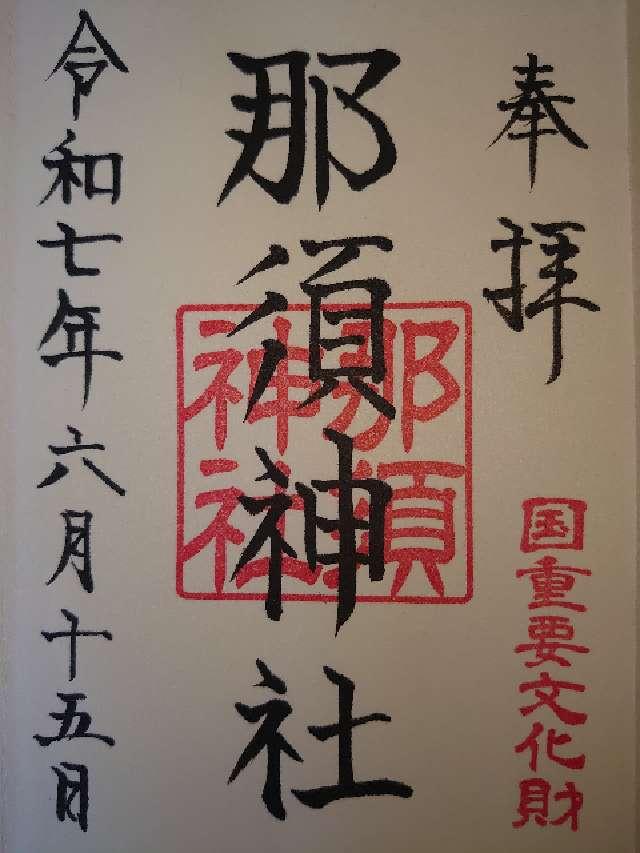 奉拝
国重要文化財
那須神社
那須
神社
令和七年六月十五日